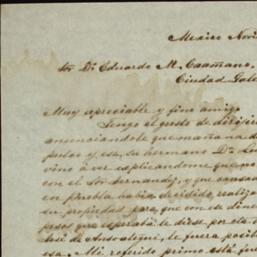 Mexico Novi
Sor Dn Eduardo M. Caamano.
Ciudad Gale
Muy apreciable y fino amigo
Tengo el gusto de dirijir
anunciandole que mañana d
y esa, su hermano Dn Lu
vino á ver esplicandome que no
con el Sor Hernandez, y que
en Puebla habia decidido realiza
su propiedad para que con ese dine
pesos que esperaba le diese por
José de Ansoategui, le fuera posib
esa. Mi referido primo está